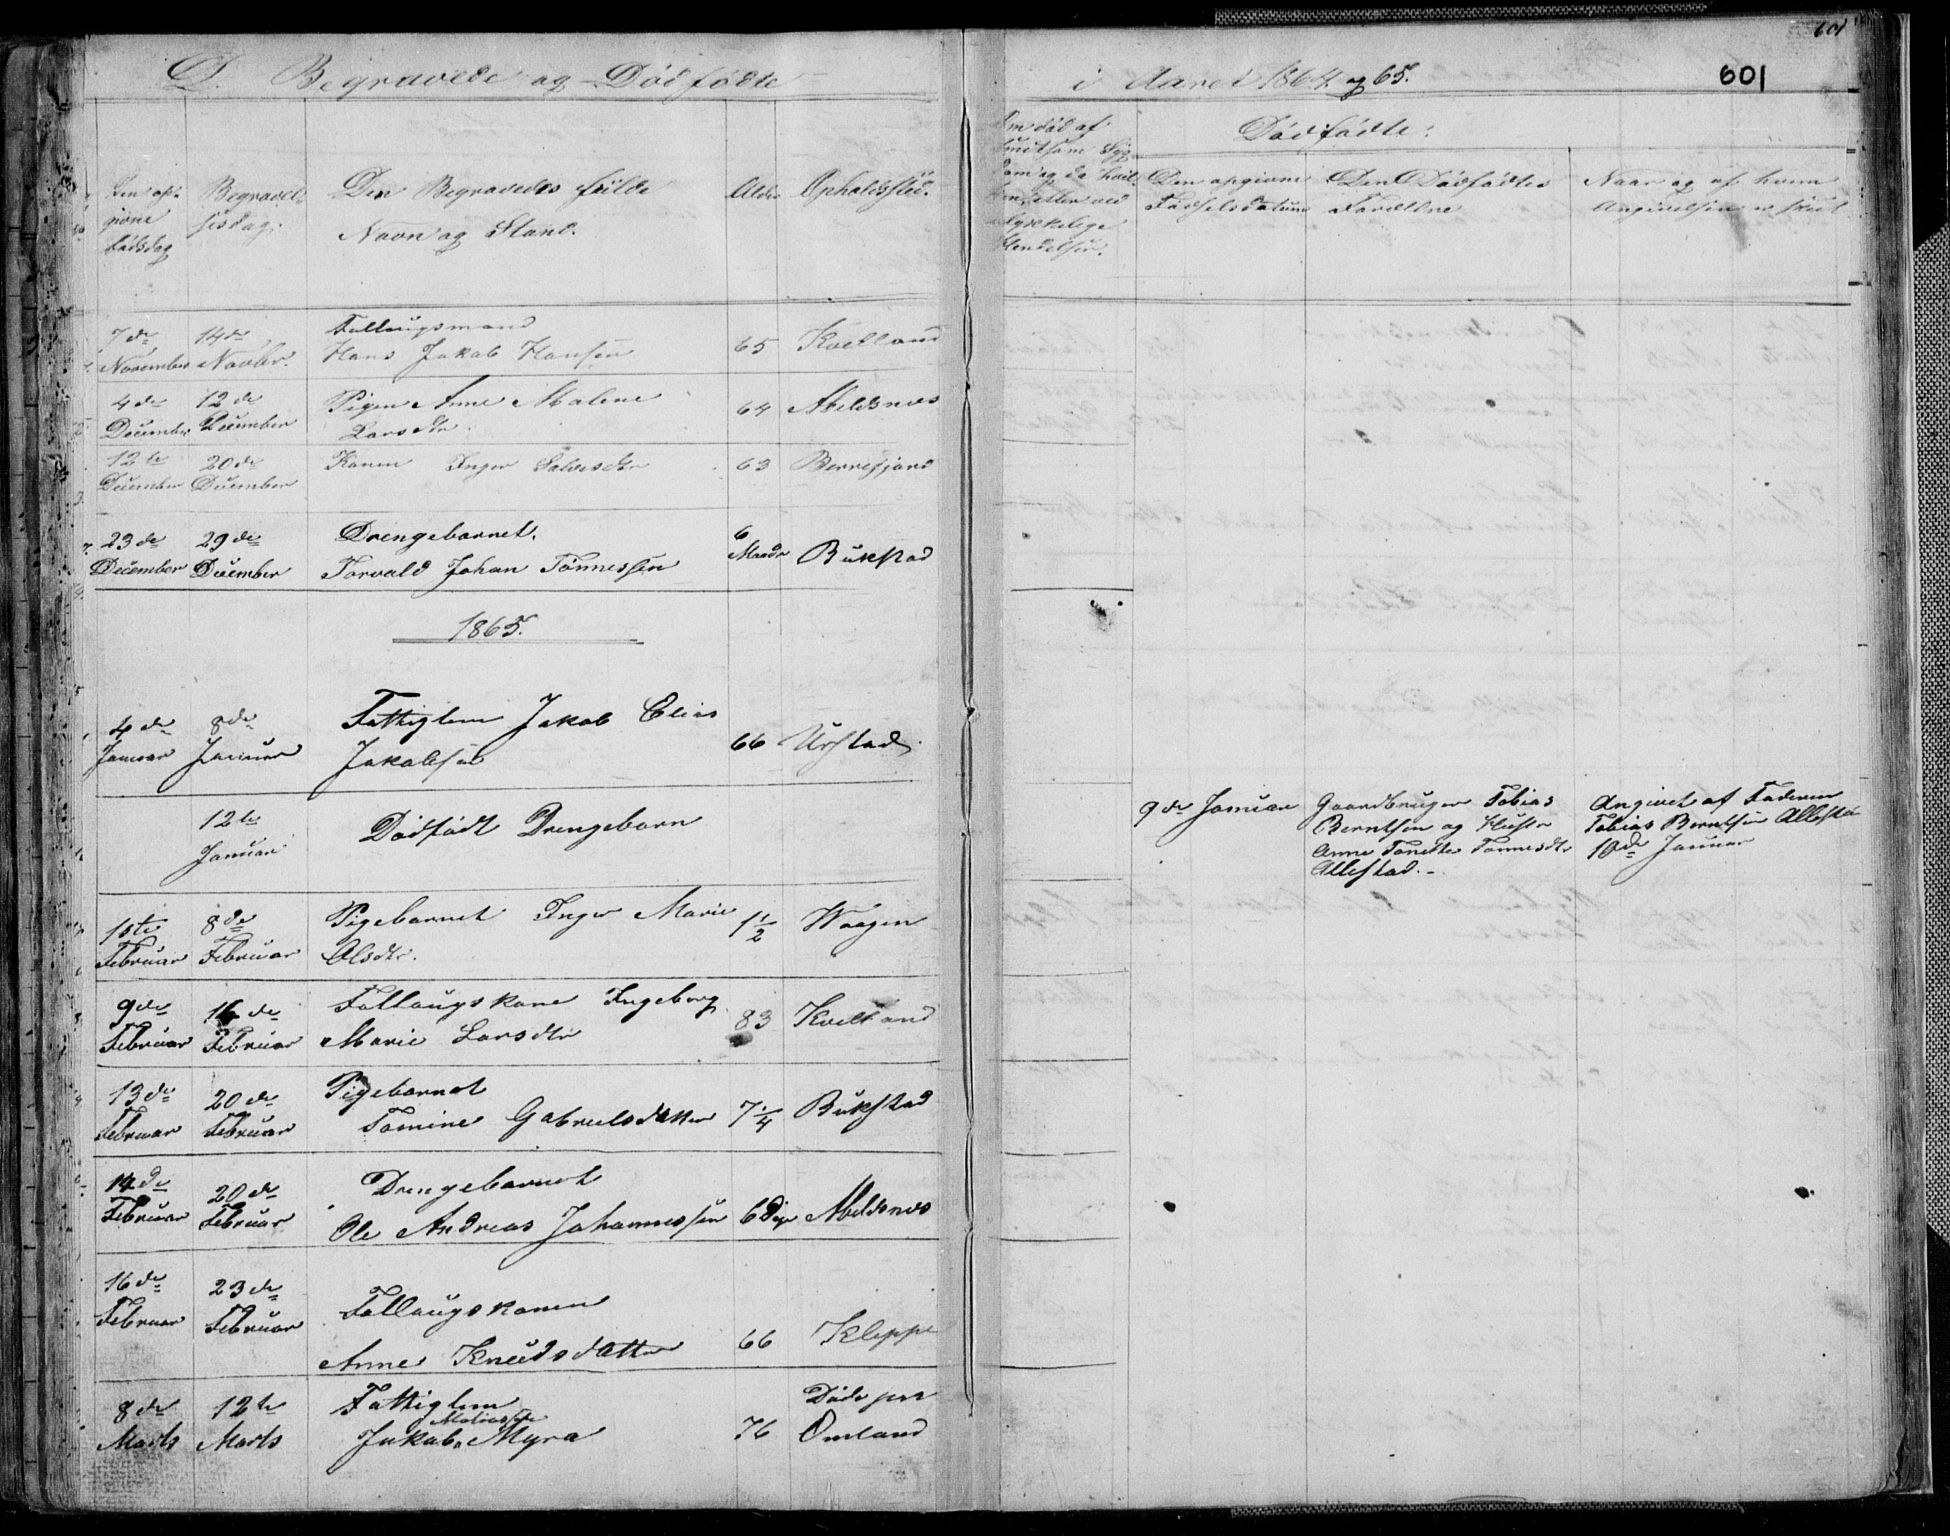 D. Begravede og Dødfødte
i Aaret 1864 og 65.
601
601
Den opgivne Dødsdag
Begravelsesdag.
Den Begravedes fulde
Navn og Stand.
Alder
Opholdssted.
Om død af
Sygdom
Hendelser.
Dødfødte:
Den opgivne
Fødselsdatum
Den Dødfødtes
Forældre
Naar og af hvem
Angivelsen er skeet
7de November
14de Novbr.
Follaugsmand
Hans Jakob Hansen
65
Kvelland
4de December
12de December
Pigen Anne Malene
Larsdtr.
64
Abelsnes
12te December
20de December
Konen Inger Salvesdtr
63
Berrefjord
23de December
29de December
Drengebarnet.
Torvald Johan Tönnessen
6 Maadr
Bukstad
1865.
4de Januar
8de Januar
Fattiglem Jakob Elias
Jakobsen
66
Urstad
12te Januar
Dødfødt Drengebarn
9de Januar
Gaardbruger Tobias
Berntsen og Hustr
Anne Tonette Tønnesdtr
Allestad.-
Angivet af Faderen
Tobias Berntsen Allesta
10de Januar
1ste Februar
8de Februar
Pigebarnet Inger Marie
Olsdtr.
1 1/2
Waagen
9de Februar
16de Februar
Follaugskone Ingeborg
Marie Larsdtr
83
Kvelland
13de Februar
20de Februar
Pigebarnet
Tomine Gabrielsdatter
7 1/4
Bukstad
14de Februar
20de Februar
Drengebarnet
Ole Andreas Johannessen
6 Dge
Abelsnes
16de Februar
23de Februar
Follaugskonen
Anne Knudsdatter
66
Kleppe
8de Marts
12te Marts
Fattiglem
Jakob Matiassen Myra
76
Døde paa
Omland